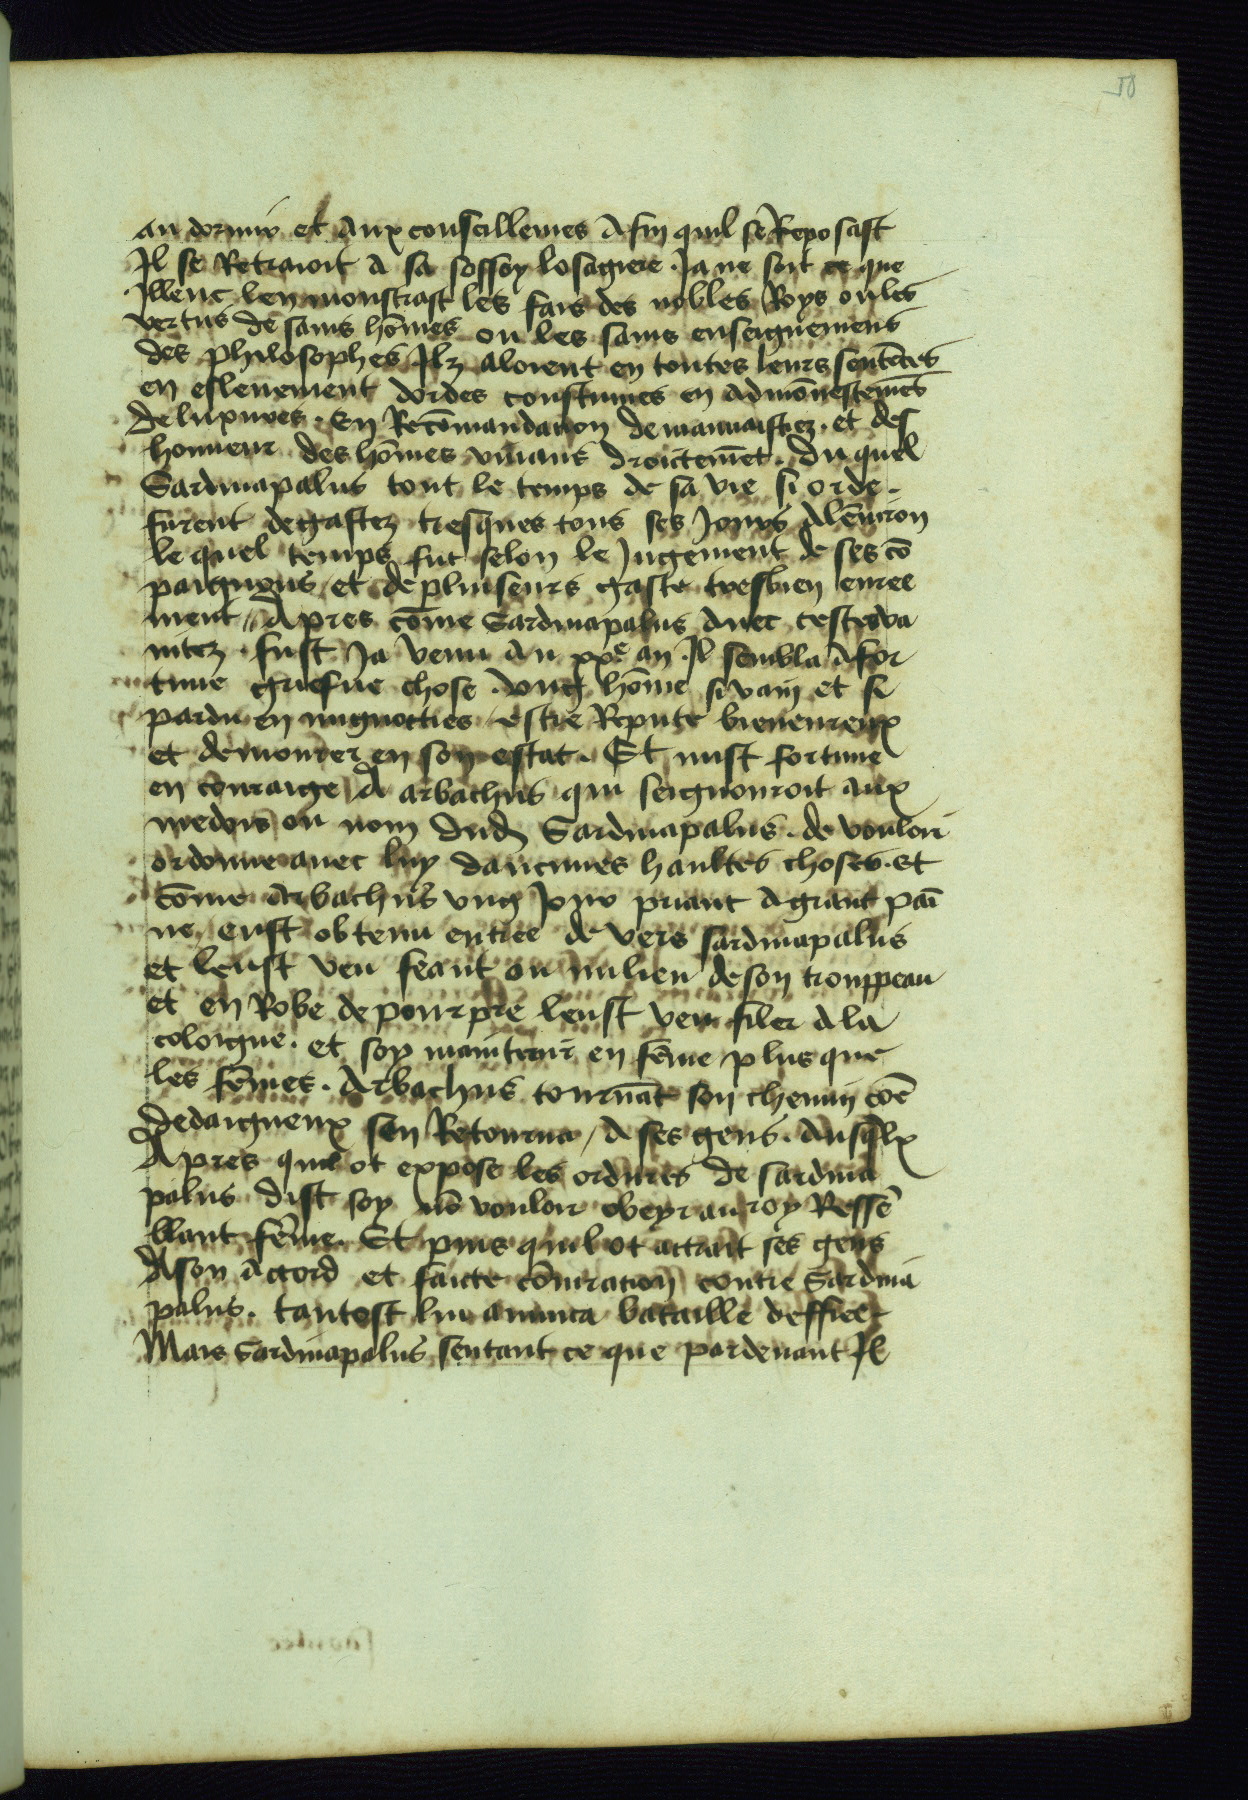 50
au dormir et aux conseillemes Afin quil se Reposast
Il se Retraioit a sa losagiere . Ja ne soit ce que
Illenc len monstrast les fais des nobles Roys ou les
vertus de sains hōmes ou les sains enseignemens
des philosophes Ilz aloient en toutes leurs sentēces
en eslevement dordes coustumes en admōnestemēs
de luxures . En Recōmandacion de mauvaistiez . et des
honneur des hōmes vivans droictemēt . du quel
Sardinapalus tout le temps de sa vie si orde .
furent degastez tresques tous ses Jours
le quel temps fut selon le Jugement de ses cō
paignons et de pluiseurs gaste tresbien euree
ment // Apres cōme Sardinapalus avec cestes va
nitez . fust Ja venu au xxe an . Il sembla a for
tune griefve chose . vng hōme si vain et si
pardu en mignotties estre Repute bieneureux
et demourer en son estat . Et mist fortune
en couraige A arbachus qui seignouroit aux
medois ou nom dud Sardinapalus . de vouloir
ordonne avec luy daucunes haultes choses . et
Cōme Arbachus vng Jour priant a grant pai
ne eust obtenu entree de vers sardinapalus
et leust veu seant ou milieu de son trouppeau
et en Robe de pourpre leust veu filer a la
coloigne . et soy maintenir en fēme plus que
les fēmes . Arbachus tournāt son chemin cōē
dedaigneux sen Retourna / a ses gens . Ausqlx
Apres quil ot expose les ordures de sardina
palus dist soy nō vouloir obeyr au roy Ressē
blant fēme . Et puis quil ot attrait ses gens
A son Accord et faicte cōiuracion contre Sardina
palus . tantost lui anunca bataille deffiee
Mais Sardinapalus sentant ce que pardevant Il